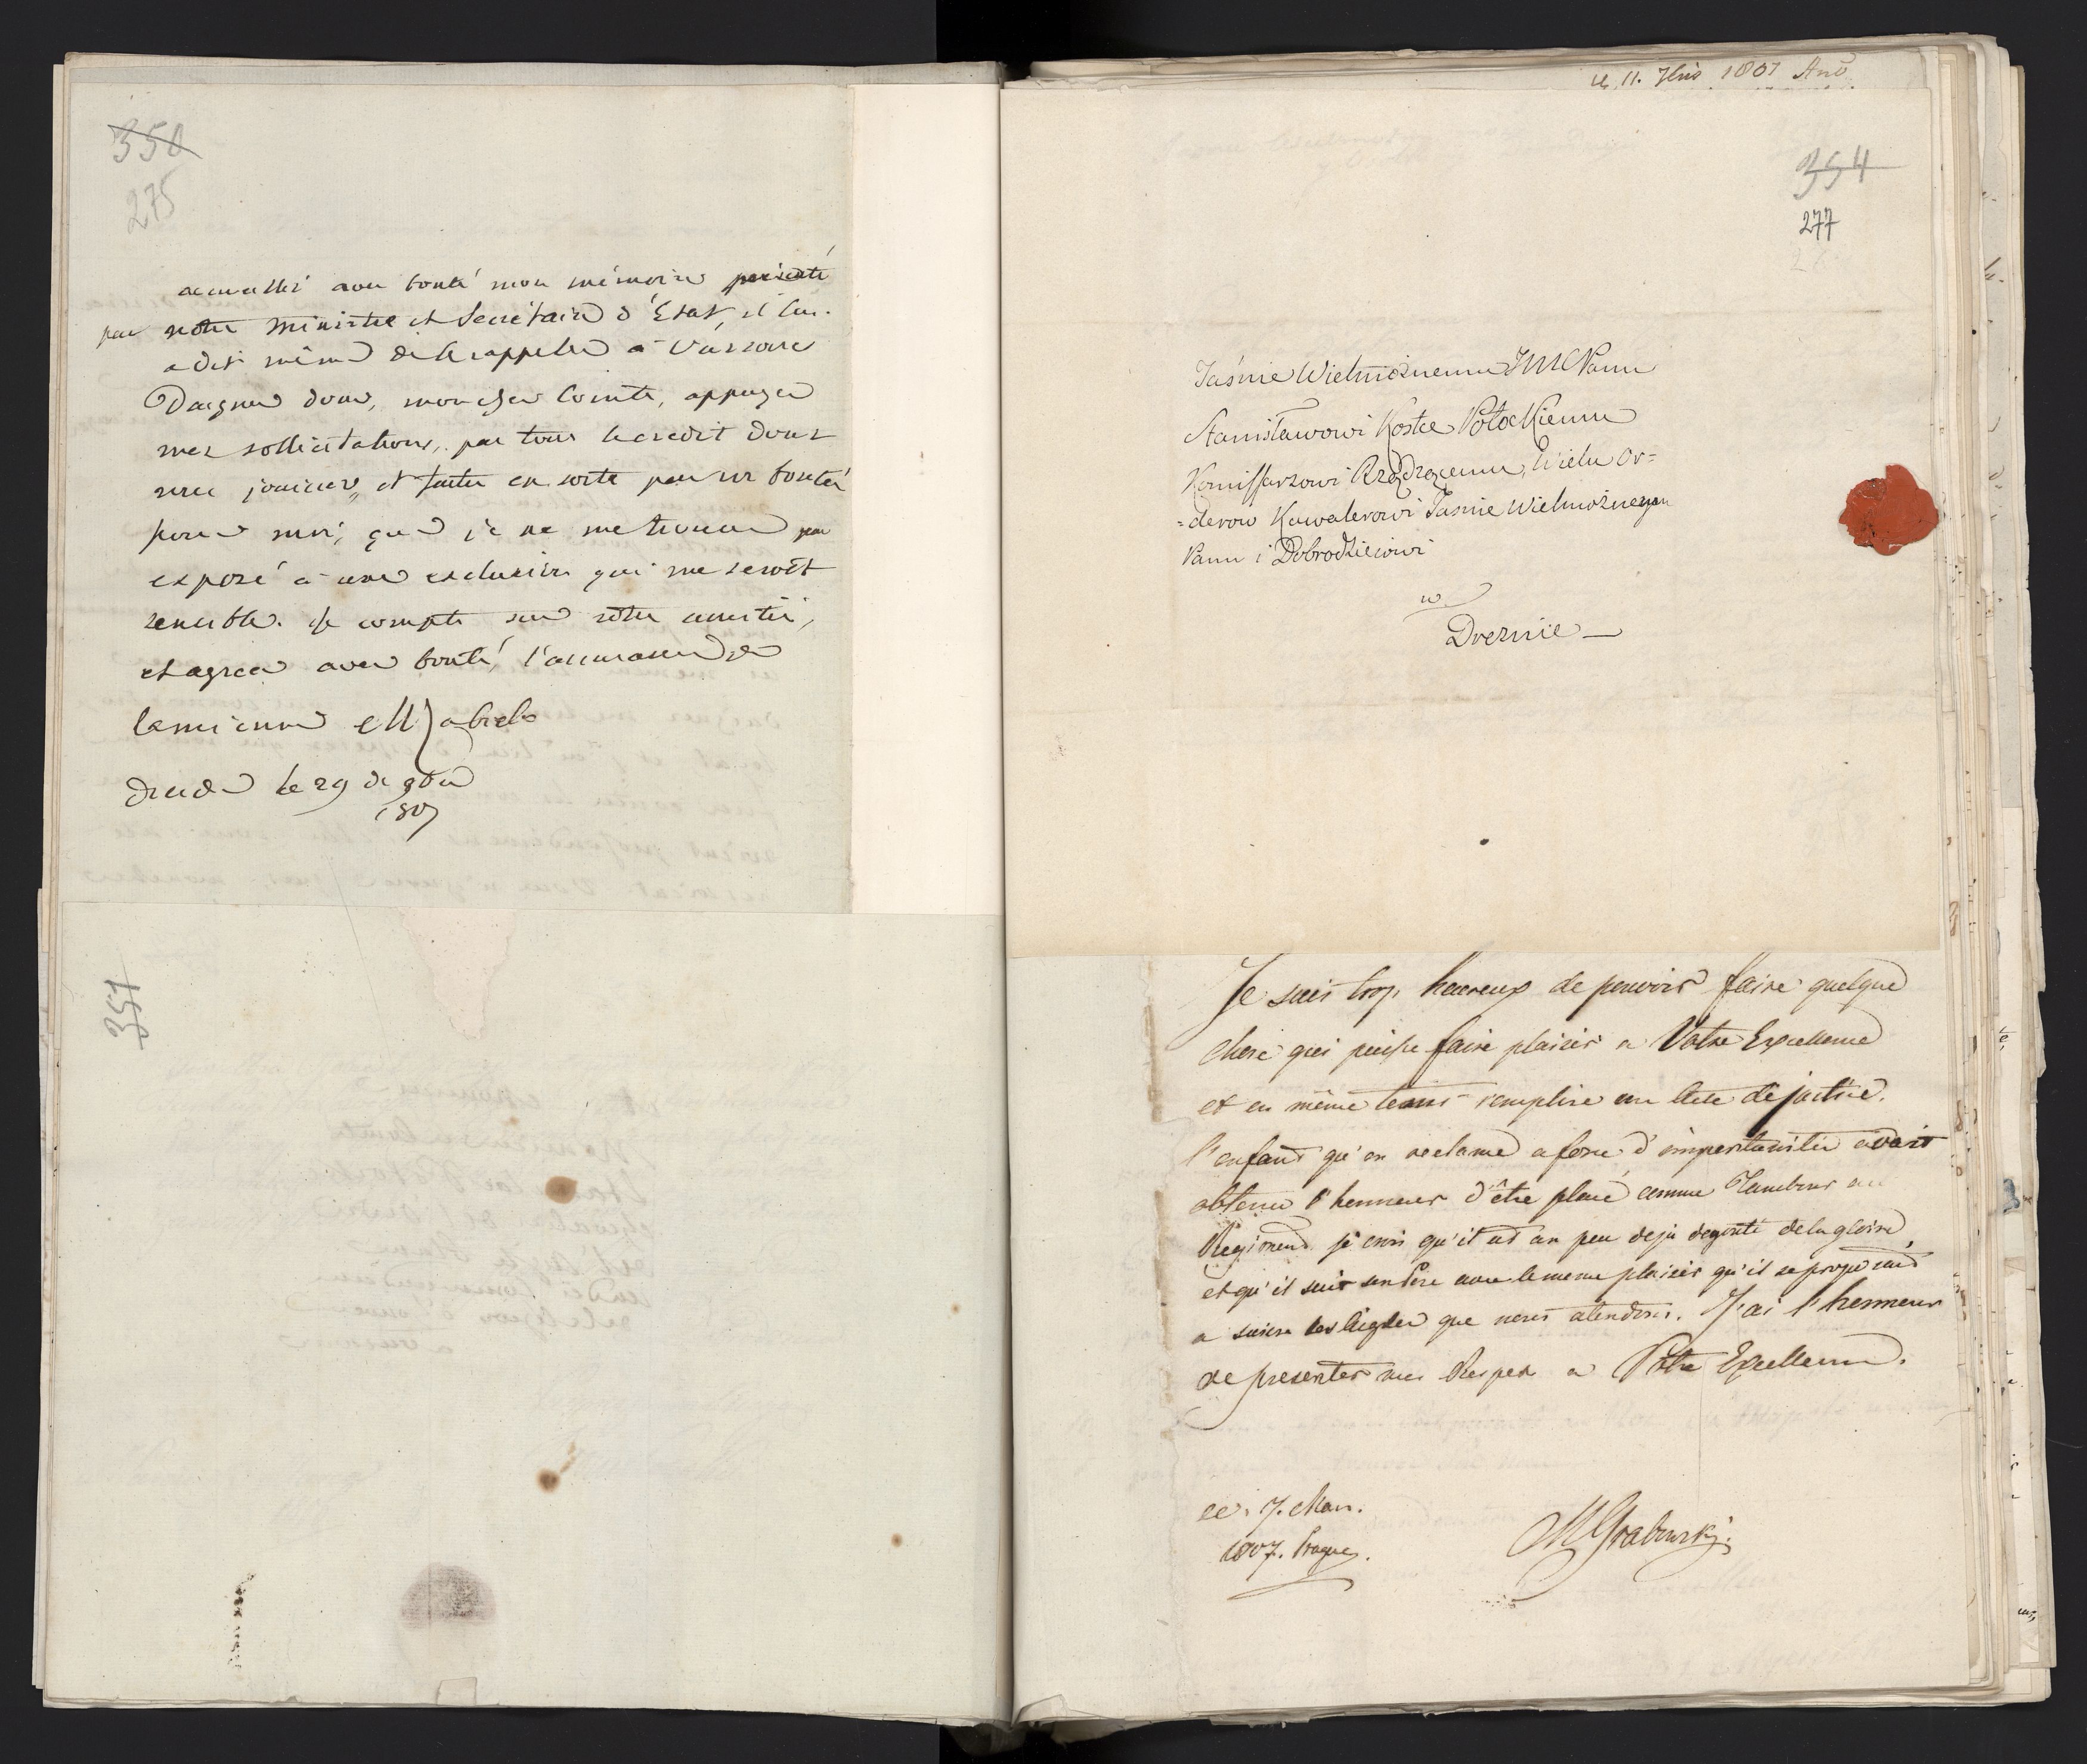 350
275
accueilli avec bonté mon mémoire présenté
par notre Ministre et Secrétaire d'État, il lui
a dit même de le rappeller à Varsovie
Daignez donc, mon cher Comte, appuyer
mes sollicitations, par tout le credit dont
vous jouissez, et faites en sorte par vos bontés
pour moi, que je ne me trouve pas
exposé à une exclusion qui me seroit
sensible. Je compte sur votre amitié,
et agréez avec bonté l'assurance de
la mienne
dresde le 29 de 9bre
1807
351
le 11. 1807
354
277
Jaśnie Wielmożnemu JMCPanu
Stanisławowi Kostce Potockiemu
Komissarzowi Rządzącemu, Wielu Or=
=derow Kawalerowi Jasnie Wielmożnemu
Panu i Dobrodziejowi
w
Dreznie —
Je suis trop heureux de pouvoir faire quelque
chose qui puisse faire plaisir a Votre Excellence
et en même tems remplire un acte de justice.
l'enfant qu'on reclame a force d'importunités avait
obtenu l'honneur d'être placé comme Tambour au
Regiment. je crois qu'il est un peu deja degouté de la gloire,
et qu'il suit son Pere avec le meme plaisir qu'il se proposait
a suivre les Aigles que nous atendons. J'ai l'honneur
de presenter mes Respets a Votre Excellence.
ce. 7. Mars.
1807. Prague.
MGrabowski.